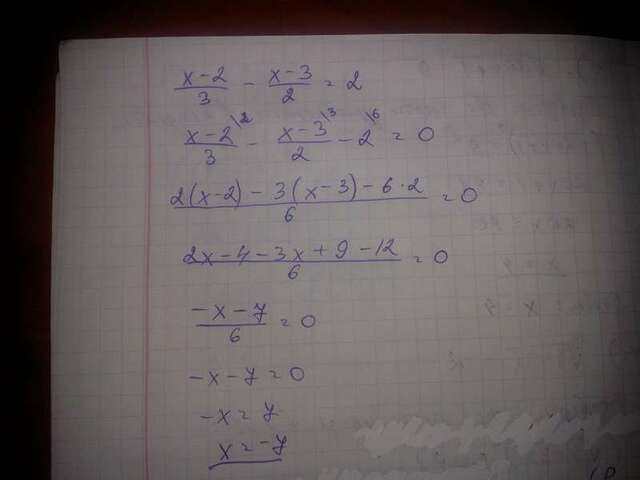 (x-2)/3 - (x-3)/2 = 2
(x-2)/3 \2 - (x-3)/2 \3 - 2 \6 = 0
(2(x-2) - 3(x-3) - 6·2)/6 = 0
(2x-4-3x+9-12)/6 = 0
(-x-7)/6 = 0
-x-7=0
-x=7
x=-7